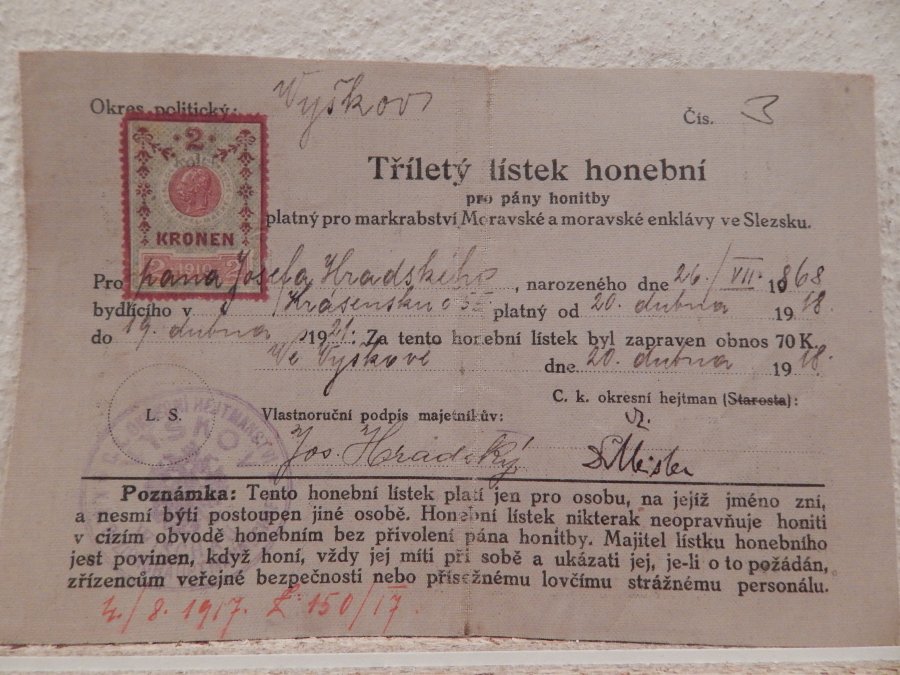 Okres politický: Vyškov
Čís. 3
2
KRONEN
2 1910 2
Tříletý lístek honební
pro pány honitby
platný pro markrabství Moravské a moravské enklávy ve Slezsku.
Pro pana Josefa Hradského, narozeného dne 26./VII. 1868
bydlícího v Krásensku č platný od 20. dubna 1918.
do 19. dubna 1921. Za tento honební lístek byl zapraven obnos 70 K.
Ve Vyškově dne 20. dubna 1918.
C. k. okresní hejtman (Starosta):
L. S.
Vlastnoruční podpis majetníkův:
Jos. Hradský
OKRESNÍ HEJTMANSTVÍ
Poznámka: Tento honební lístek platí jen pro osobu, na jejíž jméno zní,
a nesmí býti postoupen jiné osobě. Honební lístek nikterak neopravňuje honiti
v cizím obvodě honebním bez přivolení pána honitby. Majitel lístku honebního
jest povinen, když honí, vždy jej míti při sobě a ukázati jej, je-li o to požádán,
zřízencům veřejné bezpečnosti nebo přísežnému lovčímu strážnému personálu.
4./8. 1917. Z. 150/17.